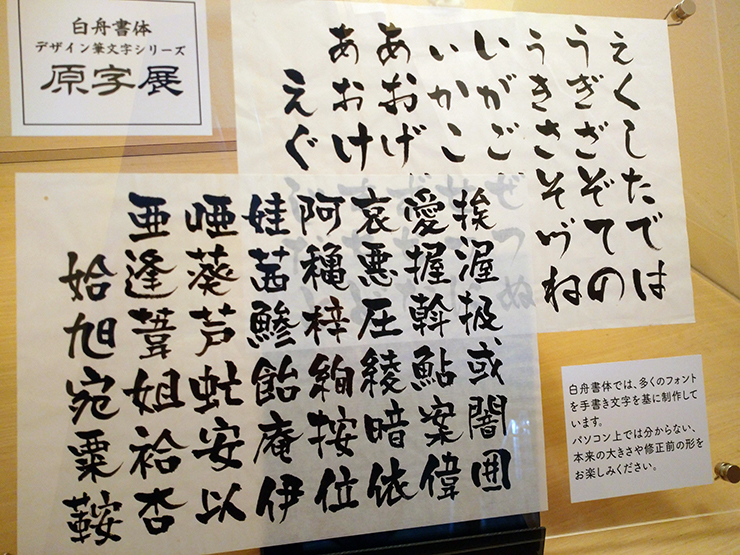 白舟書体
デザイン筆文字シリーズ
原字展
ああいいううえ
えおおかがきぎく
ぐけげこごさざし
ぜそぞた
つづてで
ぬねのは
亜唖娃阿哀愛挨
姶逢葵茜穐悪握渥
旭葦芦鯵梓圧斡扱
宛姐虻飴絢綾鮎或
粟袷安庵按暗案闇
鞍杏以伊位依偉囲
白舟書体では、多くのフォント
を手書き文字を基に制作して
います。
パソコン上では分からない、
本来の大きさや修正前の形を
お楽しみください。